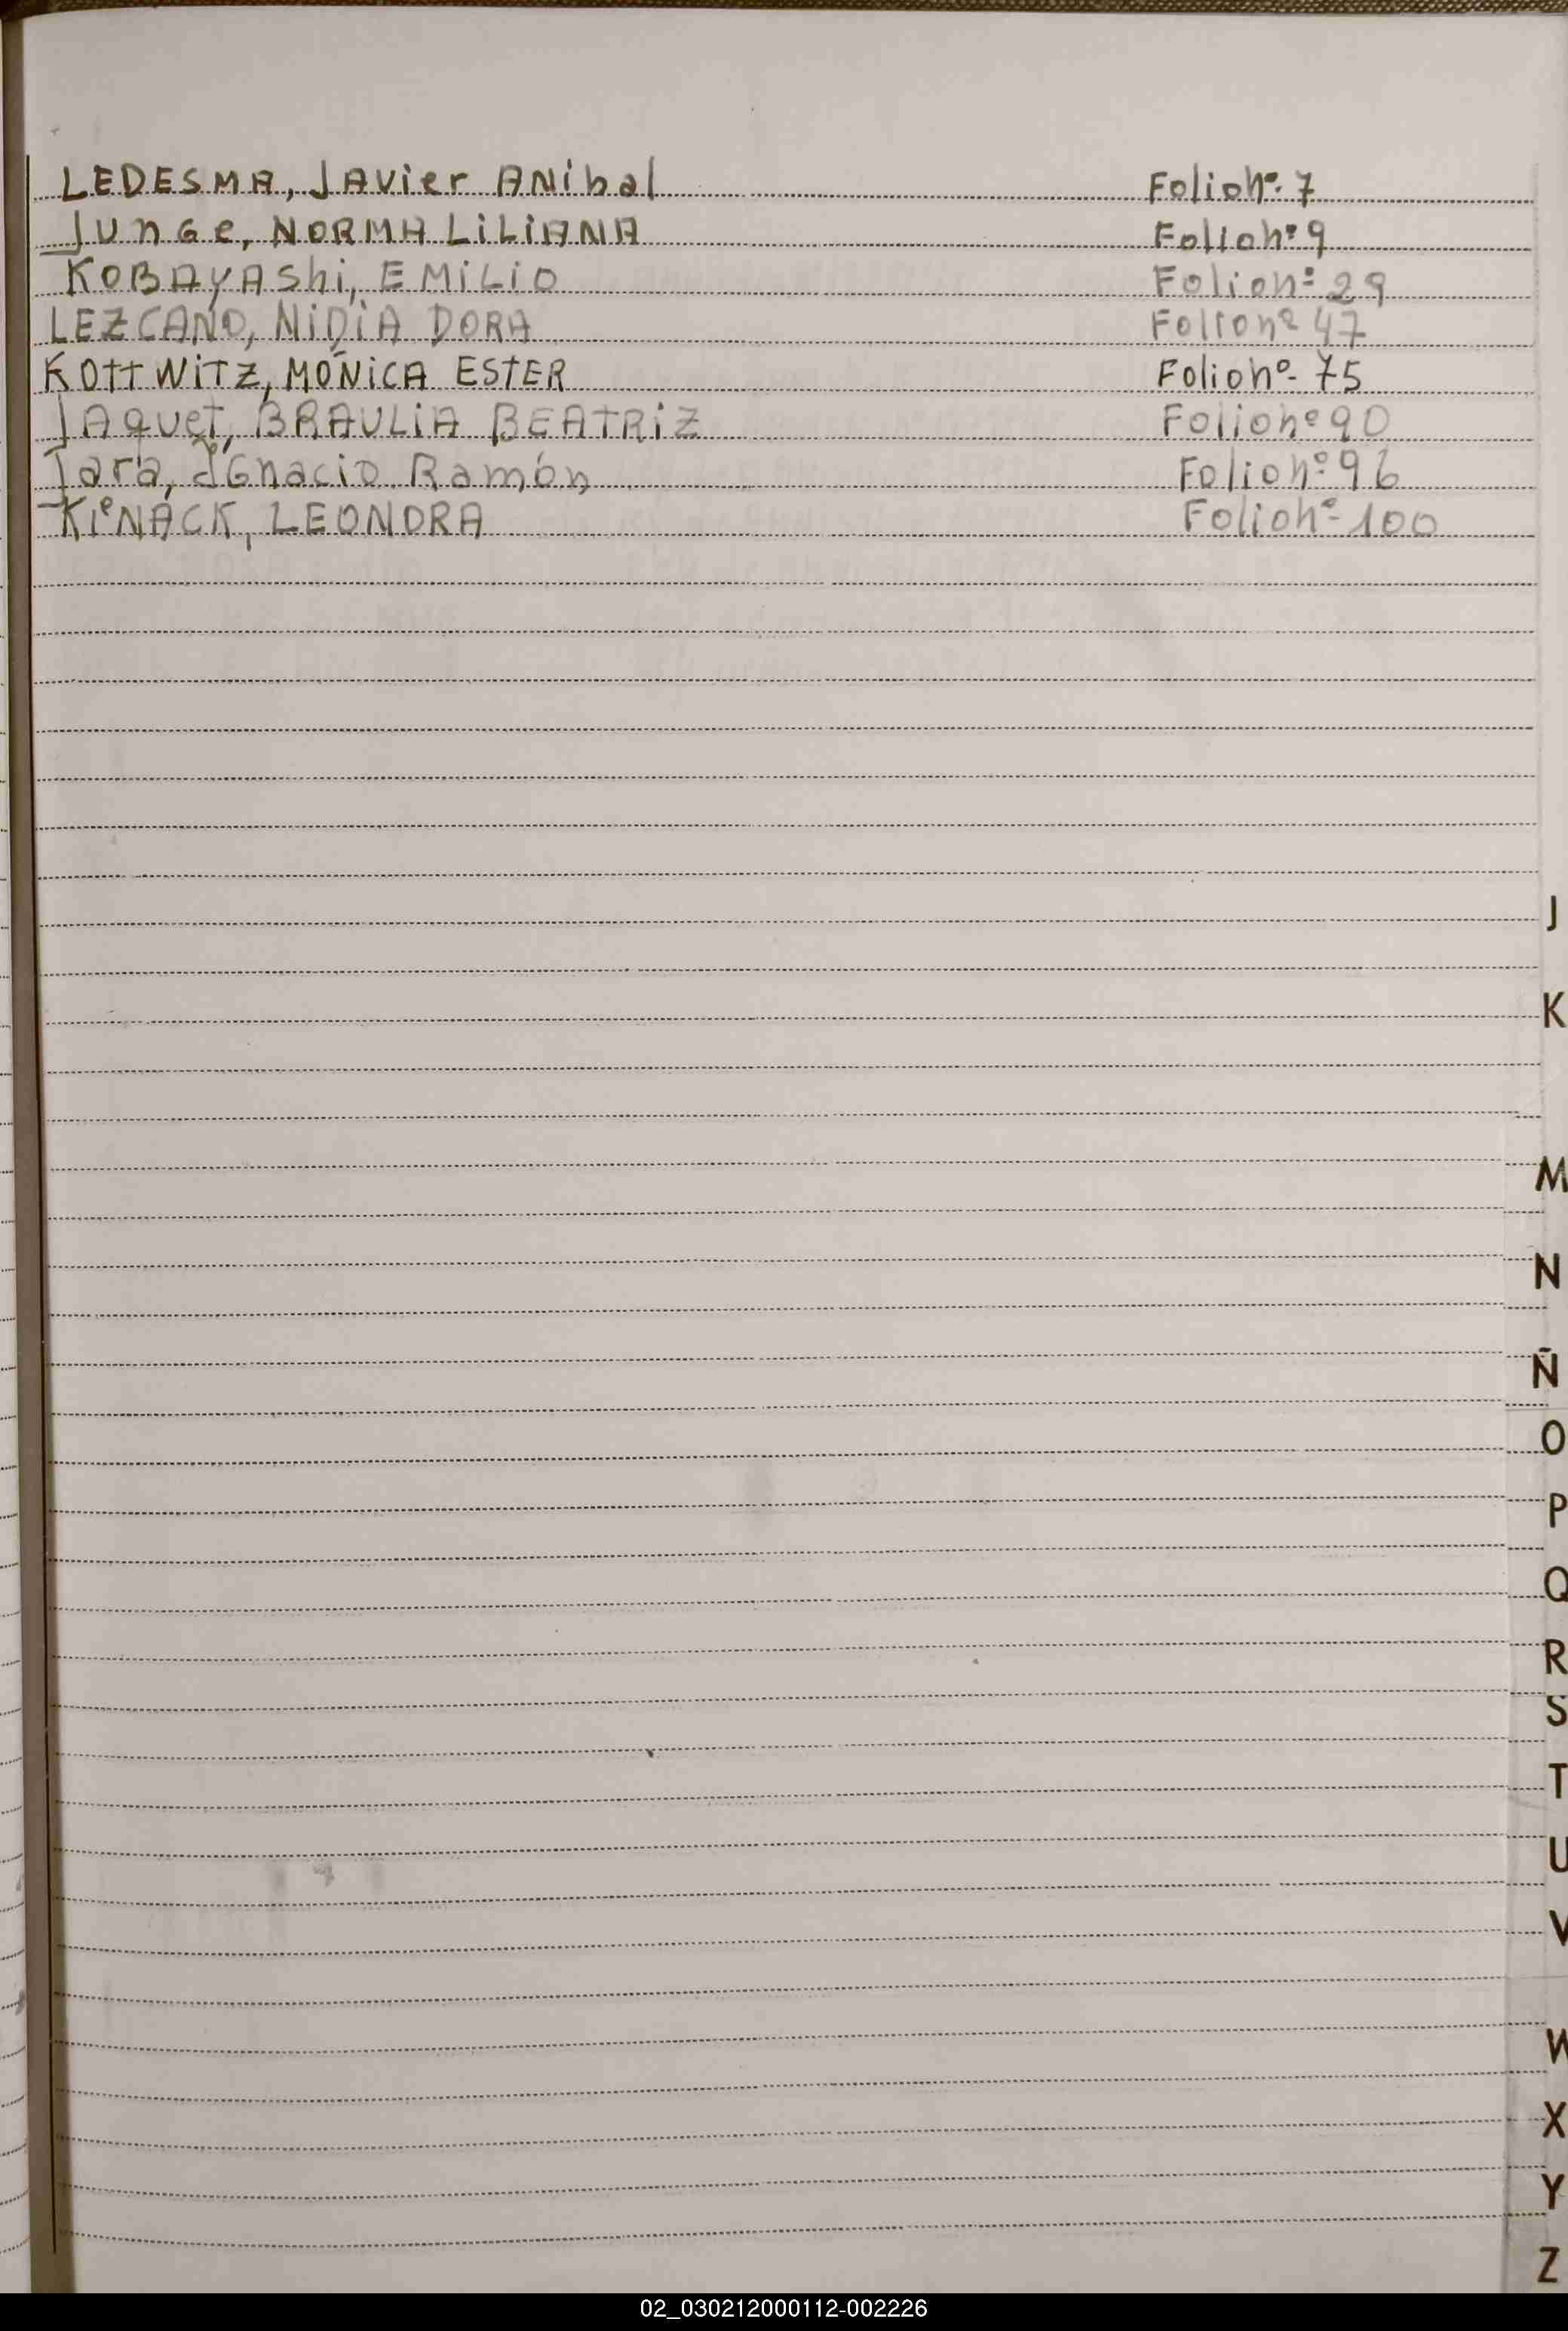 LEDESMA, JAVier ANibal Folio nº 7
JunGe, NORMA LiLiANA Folio nº 9
KOBAYAShi, EMiLiO Folio nº 29
LEZCANO, NiDiA DORA Folio nº 47
KOttWiTZ, MÓNiCA ESTER Folio nº 75
JAQuet, BRAULiA BEATRiZ Folio nº 90
Jara, IGnacio Ramón Folio nº 96
LEONDRA Folio nº 100
J
K
M
N
Ñ
O
P
Q
R
S
T
U
V
W
X
Y
Z
02_030212000112-002226